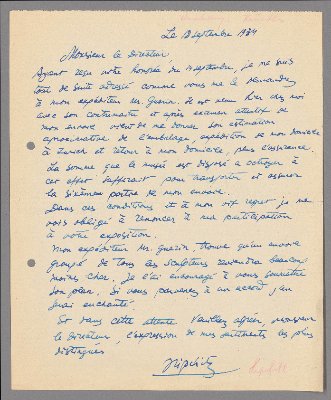 Le 18 septembre 1934
Monsieur le Directeur,
Ayant reçu votre honorée du septembre, je me suis
tout de suite adressé comme vous me le demandiez
à mon expéditeur Mr. Guérin. Il est venu hier chez moi
avec son contremaitre et après examen attentif de
mon œuvre vient de me donner son estimation
approximative de l'emballage, expédition de mon domicile
à Zurich et retour à mon domicile, plus l'assurance.
La somme que le musée est disposé à octroyer à
cet effet suffirait pour transporter et assurer
la sixième partie de mon œuvre.
Dans ces conditions et à mon vif regret je me
vois obligé à renoncer à ma participation
à votre exposition.
Mon expéditeur Mr. Guérin trouve qu'un envoi
groupé de tous les sculpteurs reviendra beaucoup
moins cher. Je l'ai encouragé à vous soumettre
son plan. Si vous parvenez à un accord j'en
serai enchanté.
Et dans cette attente veuillez agréer, monsieur
le Directeur, l'expression de mes sentiments les plus
distingués
Lipchitz